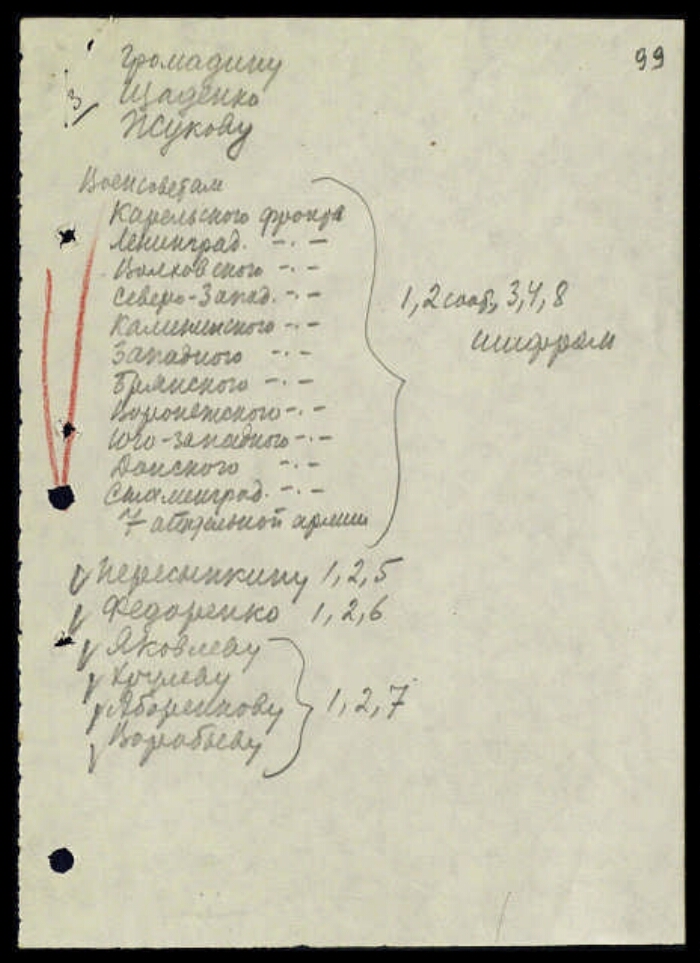 99
Громадину
Щаденко
Жукову
Военсоветам
Карельского фронта
Ленинград. -·-
Волховского -·-
Северо-Запад. -·-
Калининского -·-
Западного -·-
Брянского -·-
Воронежского -·-
Юго-Западного -·-
Донского -·-
Сталинград. -·-
7 отдельной армии
1, 2 сооб, 3, 4, 8
шифром
Пересыпкину 1, 2, 5
Федоренко 1, 2, 6
Яковлеву
Хрулеву
Аборенкову
Воробьеву
1, 2, 7